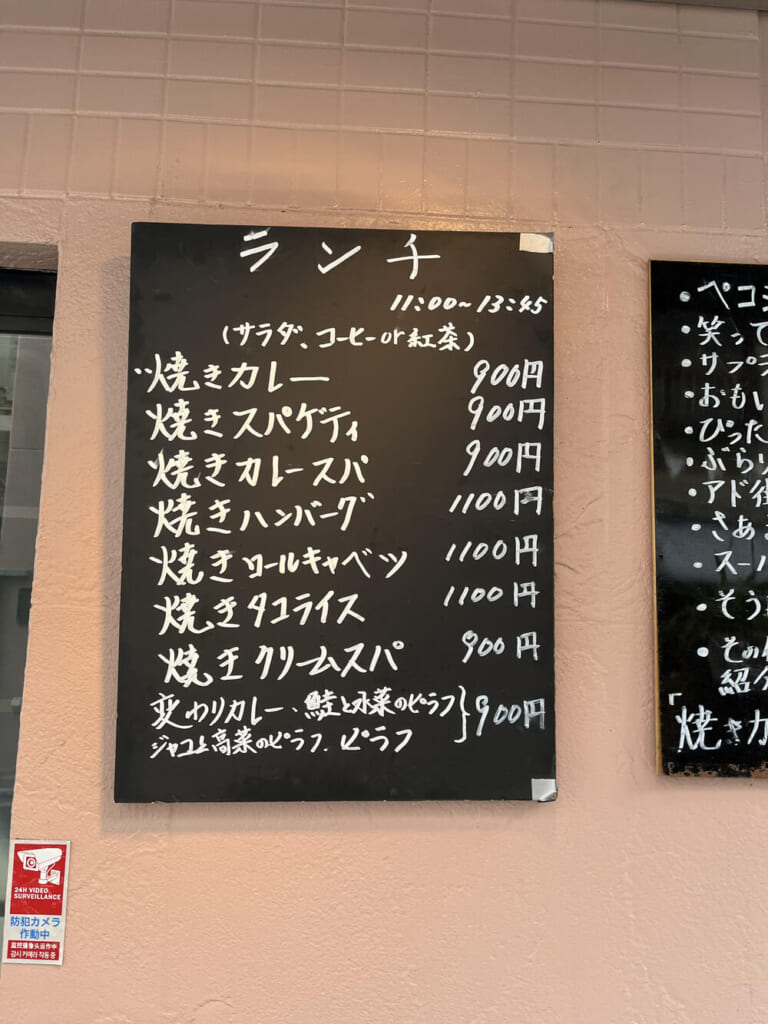 ランチ
11:00~13:45
(サラダ、コーヒーor紅茶)
焼きカレー 900円
焼きスパゲティ 900円
焼きカレースパ 900円
焼きハンバーグ 1100円
焼きロールキャベツ 1100円
焼きタコライス 1100円
焼きクリームスパ 900円
変わりカレー、鮭と水菜のピラフ
ジャコと高菜のピラフ、ピラフ } 900円
・ペコ
・笑って
・サプラ
・おもい
・ぴった
・ぶらり
・アド街
・さあ
・スーパ
・そう
・その他
紹介
「焼きカ
24H VIDEO
SURVEILLANCE
防犯カメラ
作動中
监控摄像头运作中
감시 카메라 작동 중